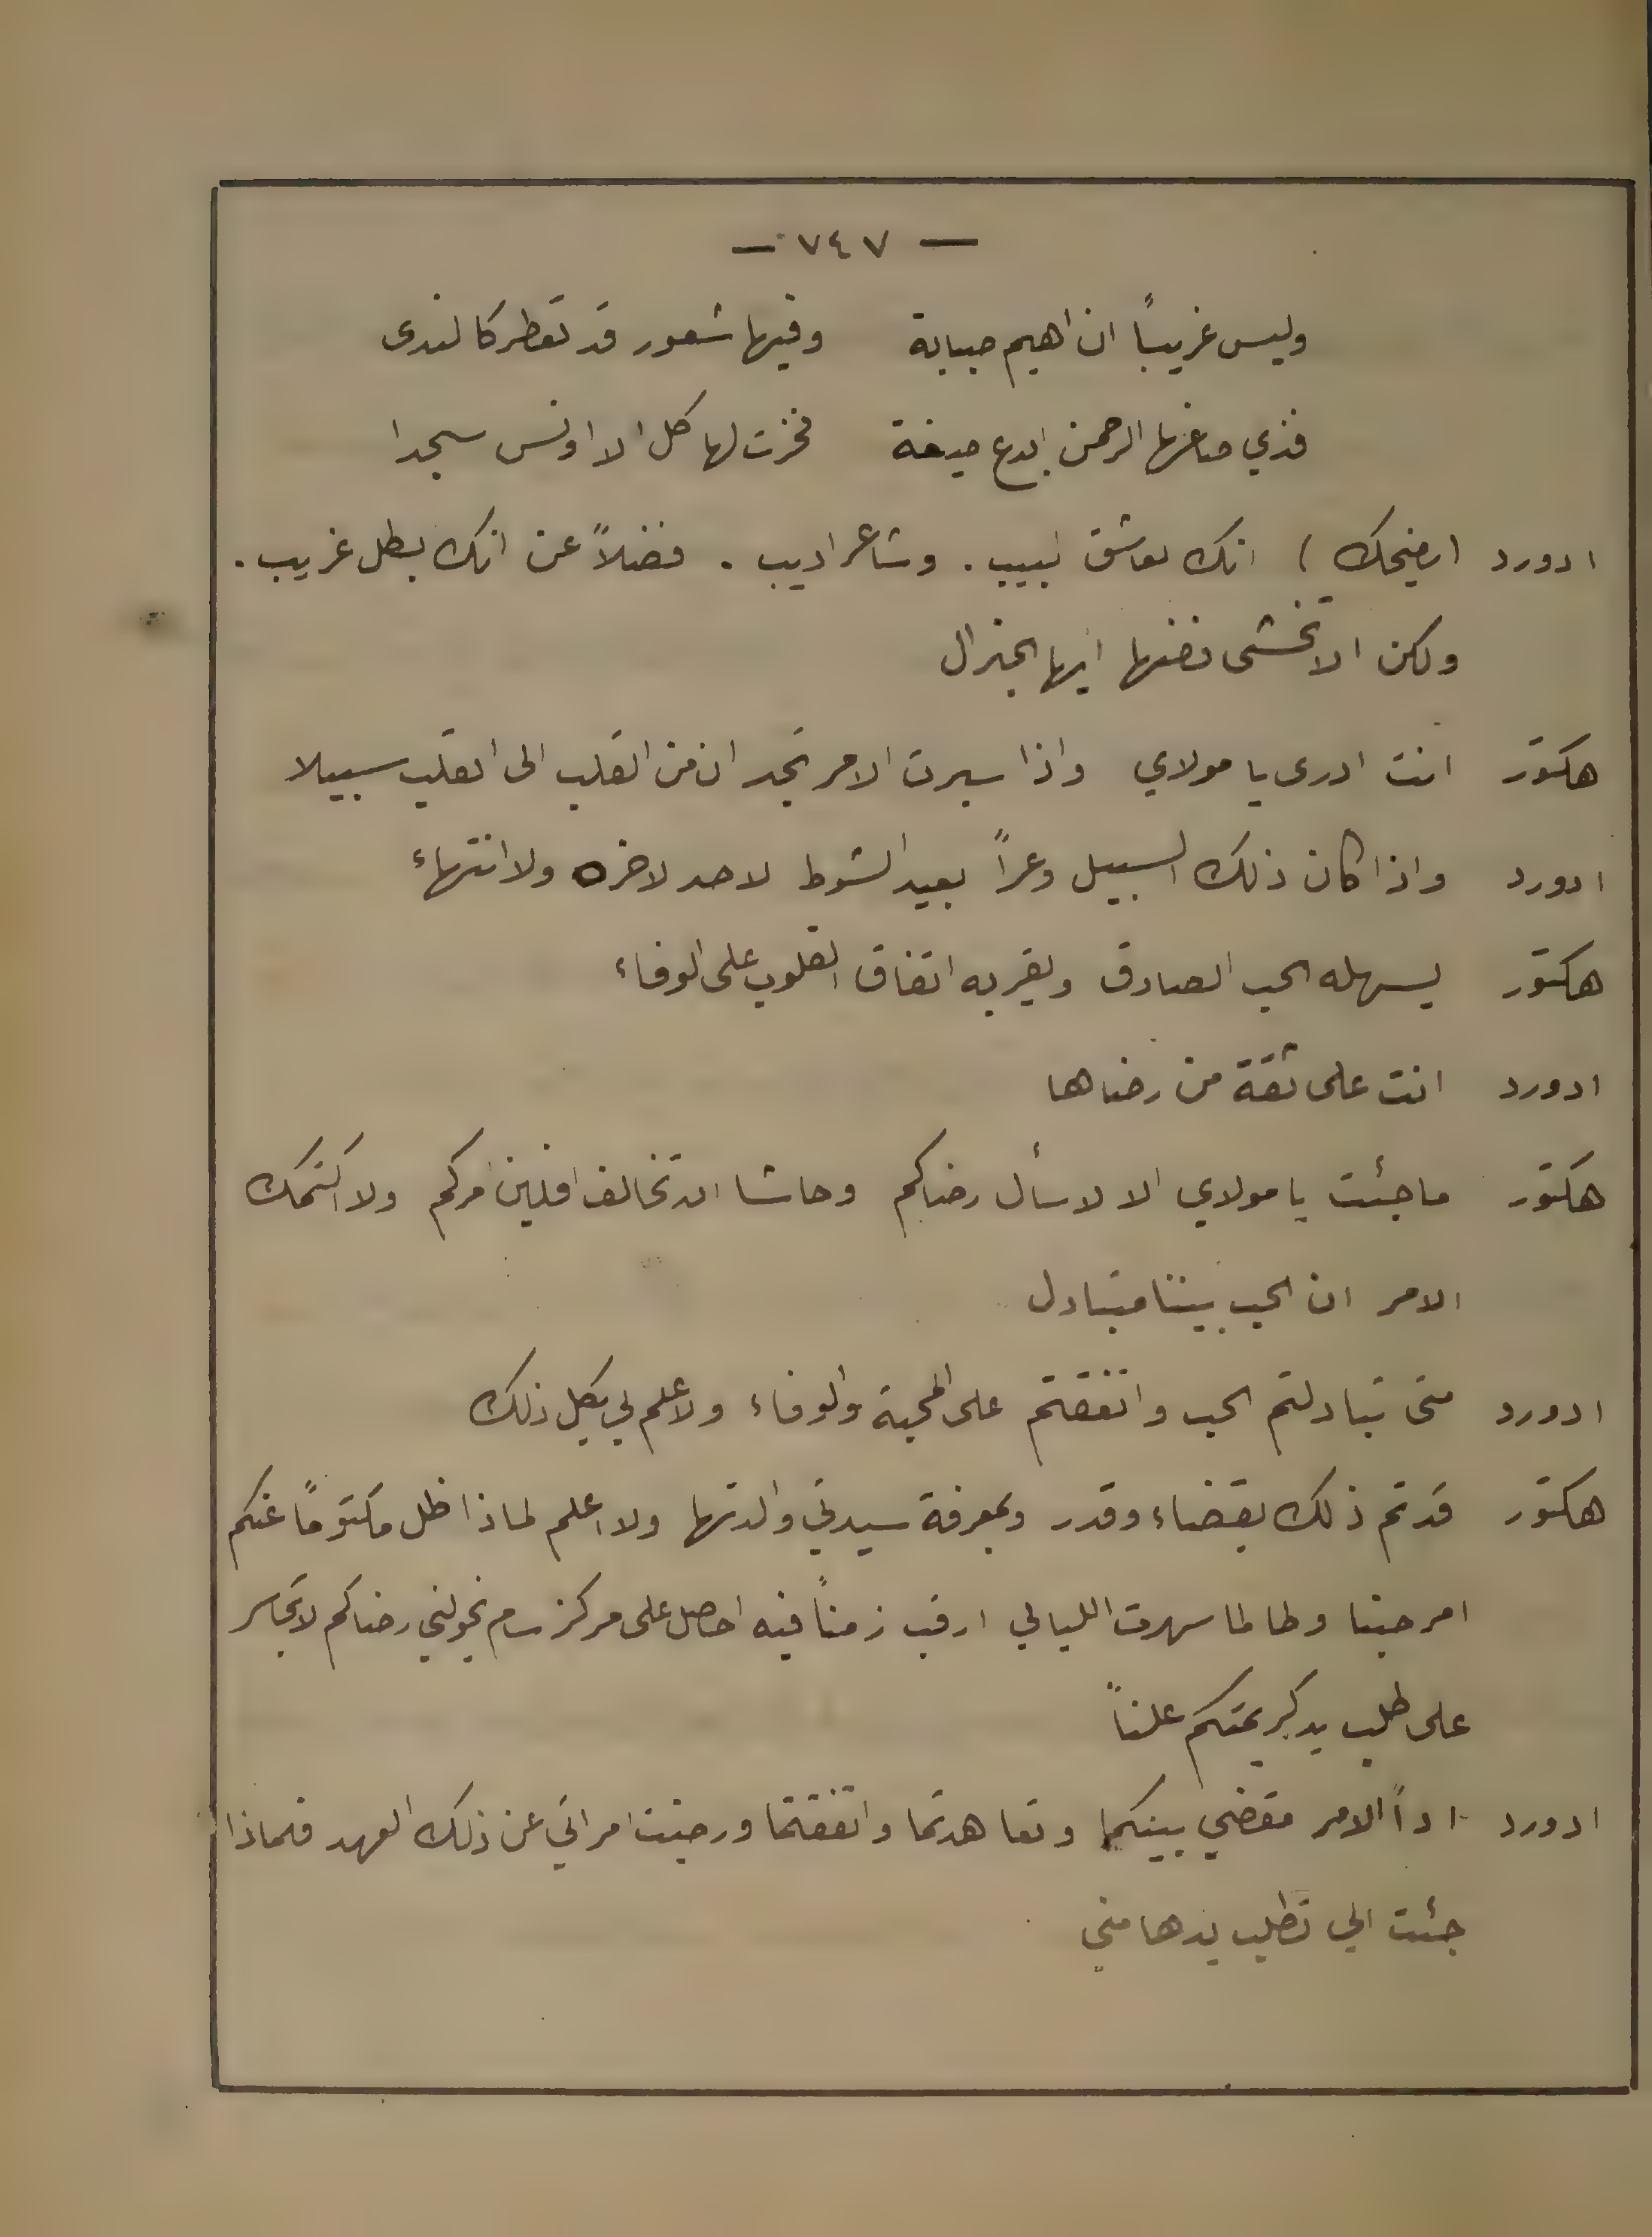 — ٧٤٧ —
وليس غريباً ان اهيم صبابة وفيها شعور قد تقطر كالندى
فذي صاغها الرحمن ابدع صيغة فخرت لها كل الاوانس سجدا
ادورد (يضحك) انك لعاشق لبيب . وشاعر اديب . فضلاً عن انك بطل غريب .
ولكن الا تخشى رفضها ايها الجنرال
هكتور انت ادرى يا مولاي واذا سبرت الامر تجد ان من القلب الى القلب سبيلا
ادورد واذا كان ذلك السبيل وعراً بعيد الشوط لا حد لاخره ولا انتهاء
هكتور يسهله الحب الصادق ويقربه اتفاق القلوب على الوفاء
ادورد انت على ثقة من رضاها
هكتور ما جئت يا مولاي الا لاسأل رضاكم وحاشا ان تخالف افلين امركم ولا اكتمك
الامر ان الحب بيننا متبادل
ادورد متى تبادلتم الحب واتفقتم على المحبة والوفاء ولا علم لي بكل ذلك
هكتور قد تم ذلك بقضاء وقدر وبمعرفة سيدتي والدتها ولا اعلم لماذا ظل مكتوماً عنكم
امر حبنا وطالما سهرت الليالي ارقب زمناً فيه احصل على مركز سام يخولني رضاكم لاتجاسر
على طلب يد كريمتكم علناً
ادورد اذاً الامر مقضي بينكما وتعاهدتما واتفقتما ورضيت امراتي عن ذلك العهد فلماذا
جئت الي تطلب يدها مني